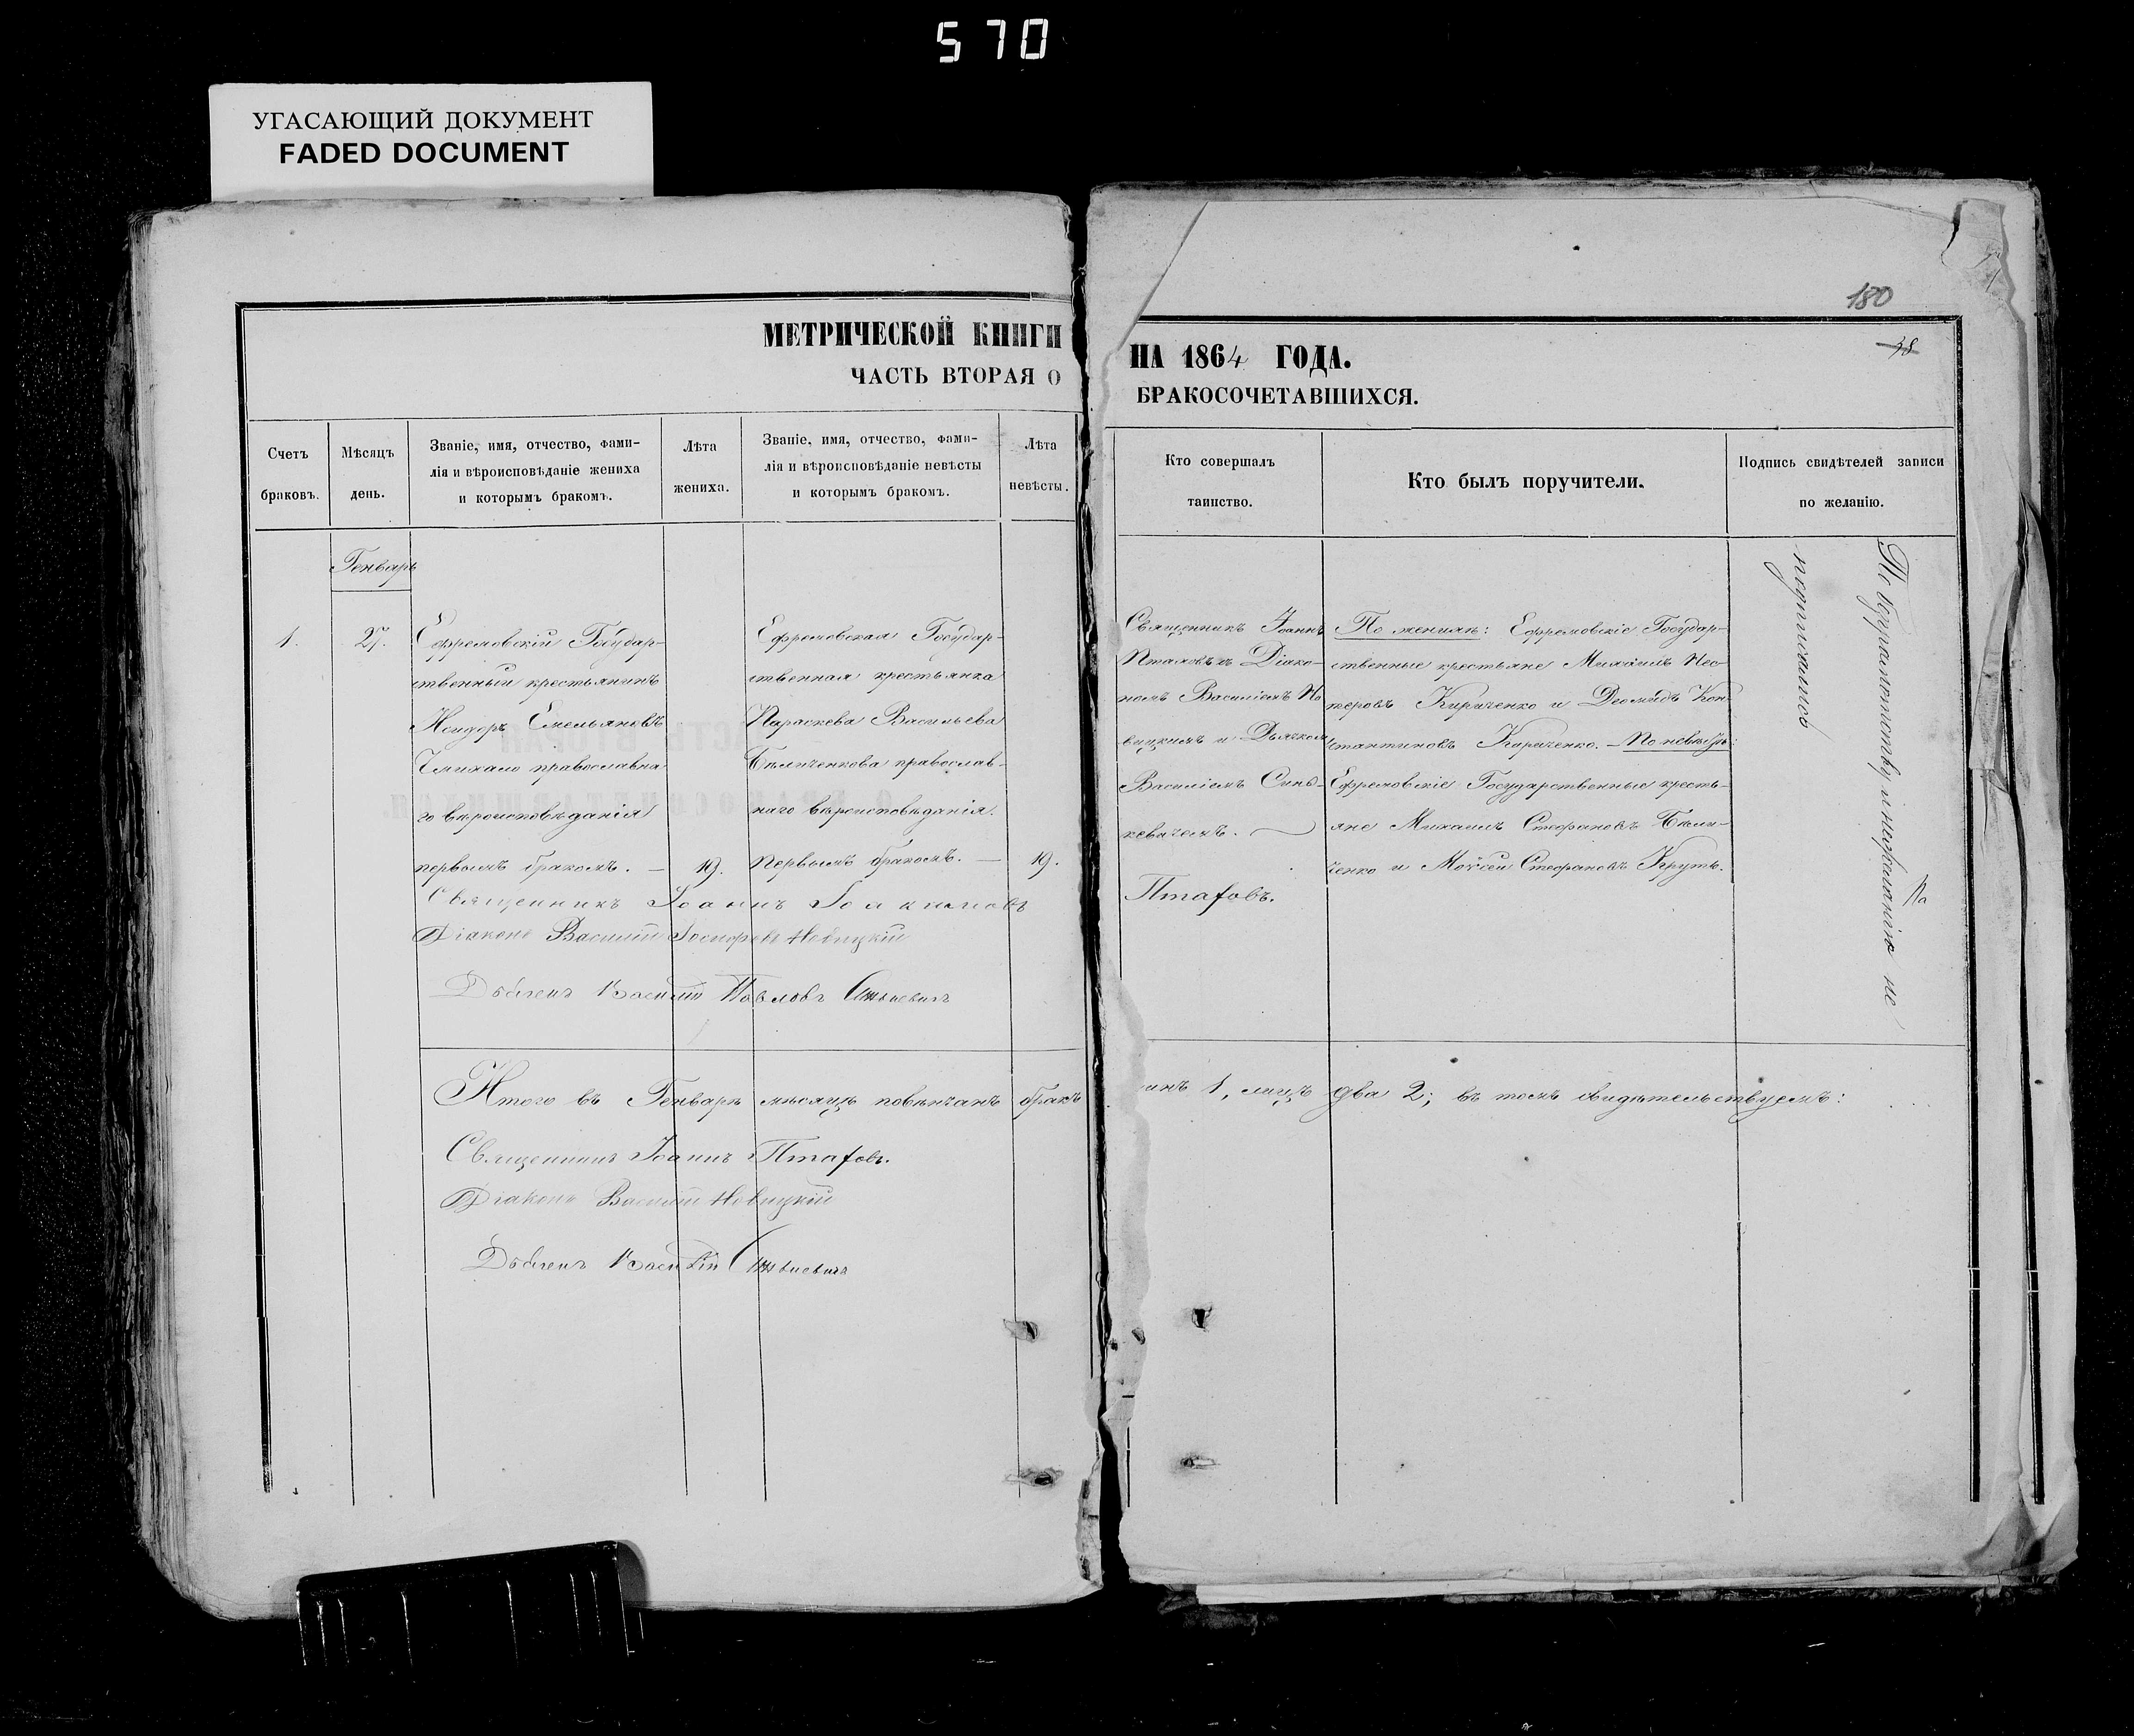 570
УГАСАЮЩИЙ ДОКУМЕНТ
FADED DOCUMENT
180
МЕТРИЧЕСКОЙ КНИГИ
ЧАСТЬ ВТОРАЯ О
НА 1864 ГОДА.
БРАКОСОЧЕТАВШИХСЯ.
Счетъ
браковъ.
Мѣсяцъ
день.
Званіе, имя, отчество, фами-
лія и вѣроисповѣданіе жениха
и которымъ бракомъ.
Лѣта
жениха.
Званіе, имя, отчество, фами-
лія и вѣроисповѣданіе невѣсты
и которымъ бракомъ.
Лѣта
невѣсты.
Кто совершалъ
таинство.
Кто былъ поручители.
Подпись свидѣтелей записи
по желанію.
Генварь
1.
27.
Ефремовскій Государ-
ственный крестьянинъ
Исидоръ Емельяновъ
православна
го вѣроисповѣданія
первымъ бракомъ. —
19.
Ефремовская Государ-
ственная крестьянка
Параскева Васильева
Бѣличенкова православ-
наго вѣроисповѣданія.
первымъ бракомъ. —
19.
Священникъ Іоаннъ
Діако-
номъ Василіемъ Но
вицкимъ и Дьячкомъ
Василіемъ Синь-
кевичемъ.
Птаховъ.
По женихѣ: Ефремовскіе Государ-
ственные крестьяне Михаилъ Нес-
теровъ Кириченко и Діомидъ Кон
стантиновъ Кириченко. — По невѣстѣ:
Ефремовскіе Государственные кресть-
яне Михаилъ Стефановъ Бѣли-
ченко и Моѵсей Стефановъ Круть.
По безграмотству и нежеланію не
подписались
Священникъ Іоаннъ
Діаконъ Василій Новицкій
Дьячекъ Василій Павловъ Синькевичъ
Итого въ Генварѣ мѣсяцѣ повѣнчанъ бракъ
инъ 1, лицъ два 2; въ томъ свидѣтельствуемъ:
Священникъ Іоаннъ Птаховъ.
Діаконъ Василій Новицкій
Дьячекъ Василій Синькевичъ